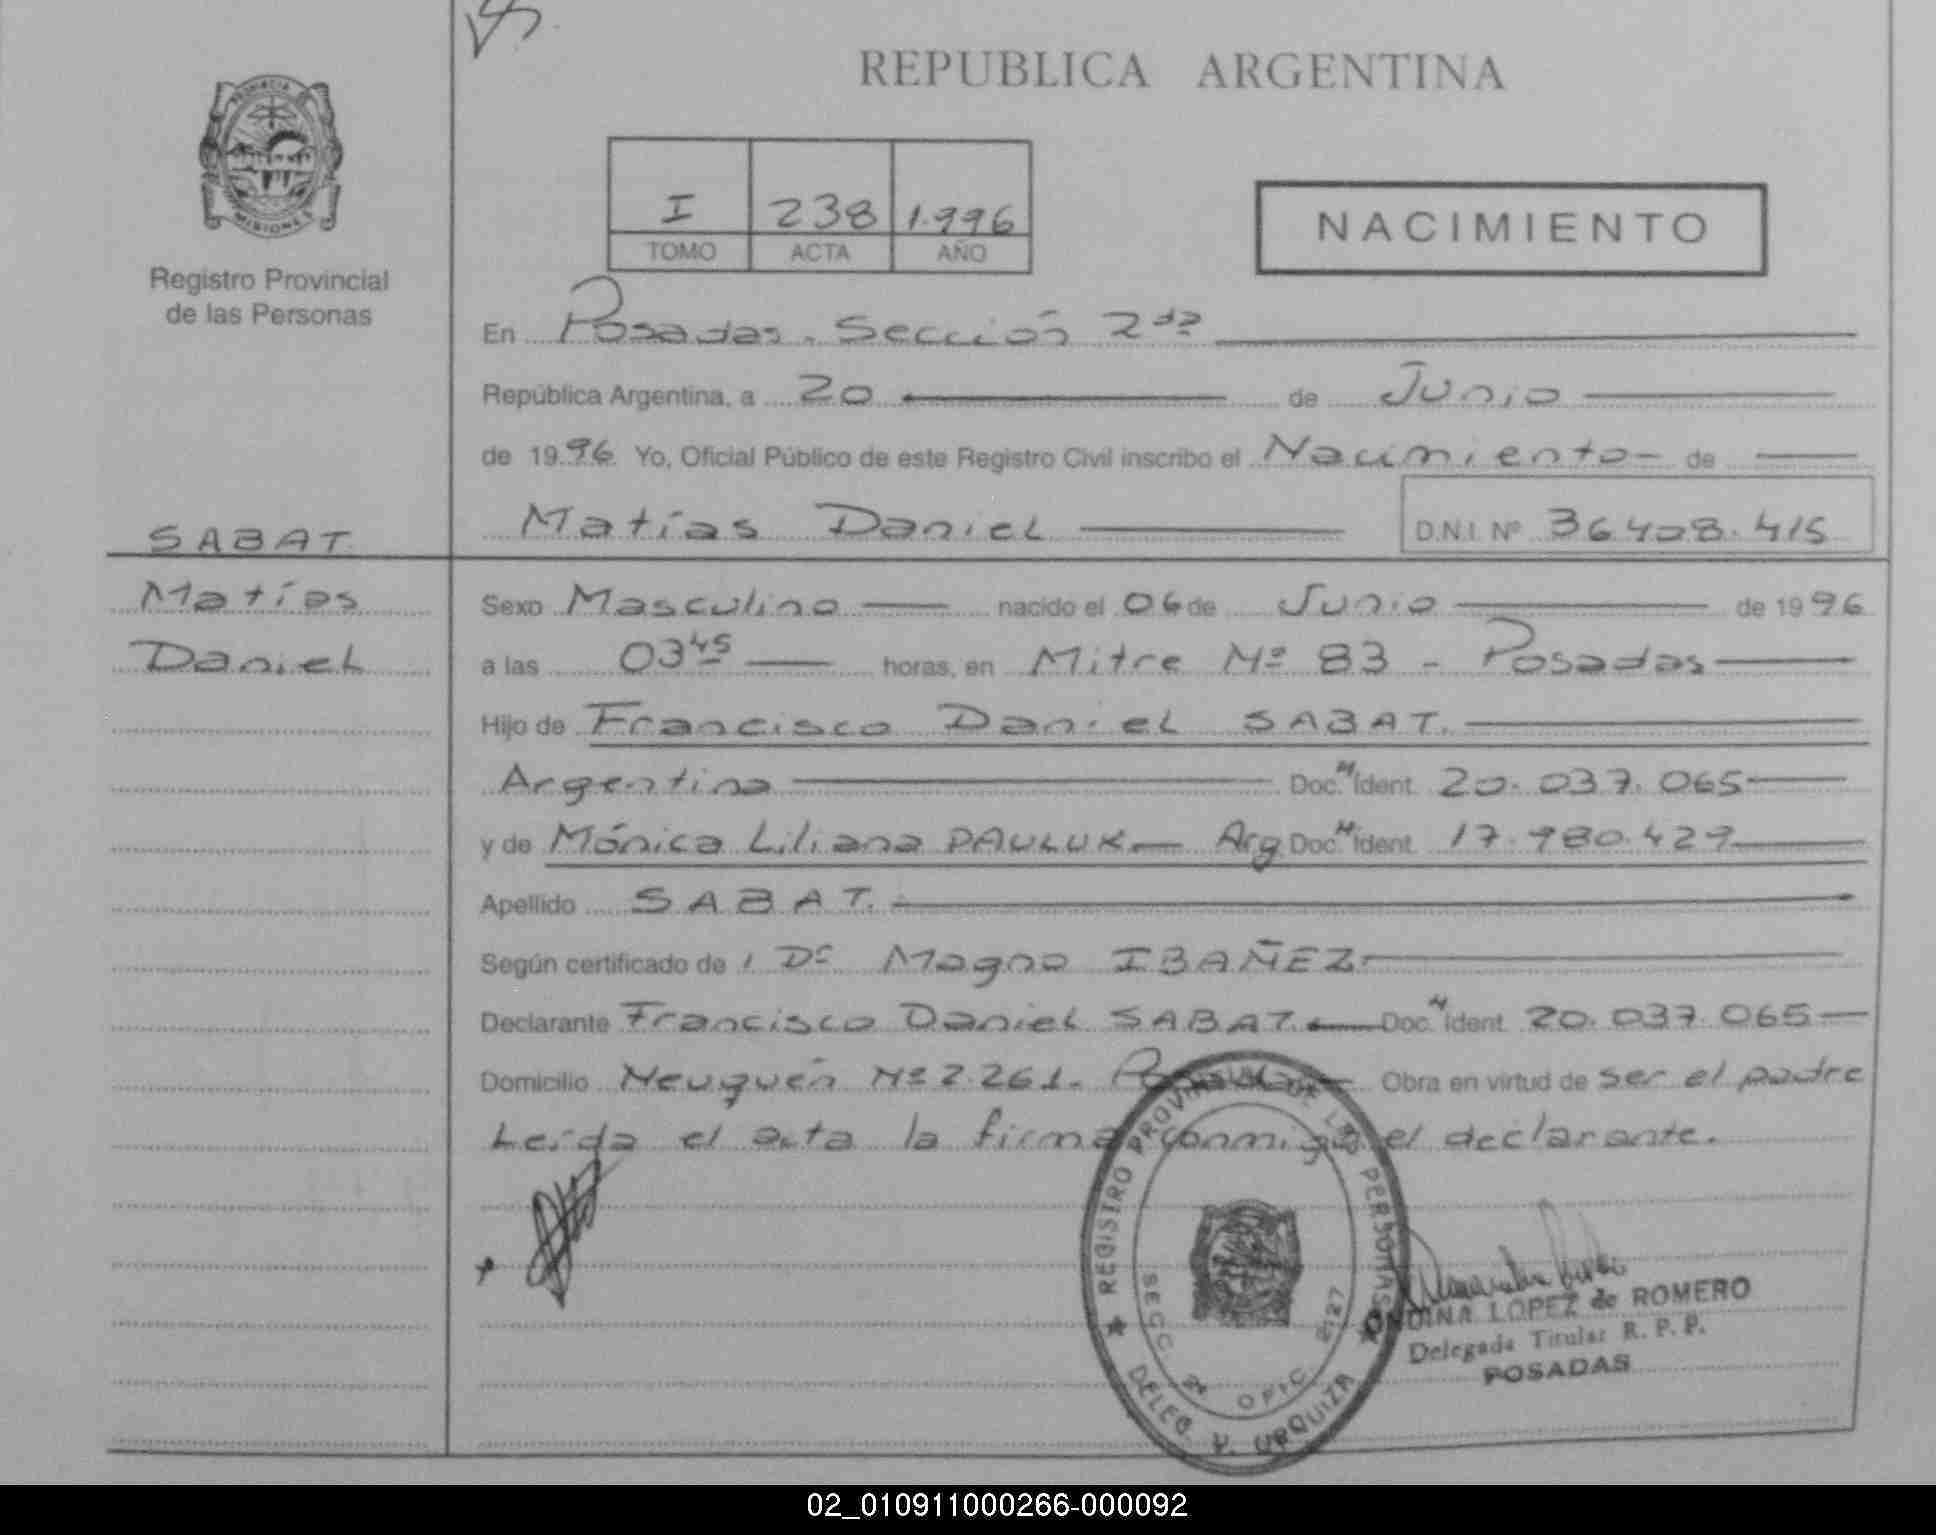 REPUBLICA ARGENTINA
PROVINCIA DE
MISIONES
Registro Provincial
de las Personas
I 238 1.996
TOMO ACTA AÑO
NACIMIENTO
En Posadas. Sección 2da
República Argentina, a 20 de Junio
de 1996 Yo, Oficial Público de este Registro Civil inscribo el Nacimiento de
Matías Daniel D.N.I. Nº 36408.415
SABAT
Matías
Daniel
Sexo Masculino nacido el 06 de Junio de 1996
a las 03 45 horas, en Mitre Nº 83 - Posadas
Hijo de Francisco Daniel SABAT.
Argentino Doc. Ident. 20.037.065
y de Mónica Liliana PAULUK Arg Doc. Ident. 17.980.429
Apellido SABAT.
Según certificado de Dr Magno IBAÑEZ
Declarante Francisco Daniel SABAT. Doc. Ident. 20.037.065
Domicilio Neuquén Nº 2.261. Posadas Obra en virtud de ser el padre
Leída el acta la firma conmigo el declarante.
REGISTRO PROVINCIAL DE LAS PERSONAS
SECC 2ª OFIC. 2127
DELEG. V. URQUIZA
ONDINA LOPEZ de ROMERO
Delegada Titular R. P. P.
POSADAS
02_010911000266-000092